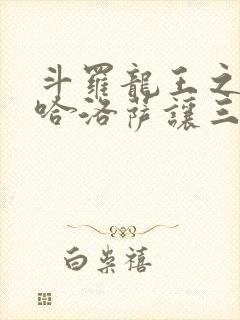 斗羅龍王之
哈洛薩讓三
白柴禧